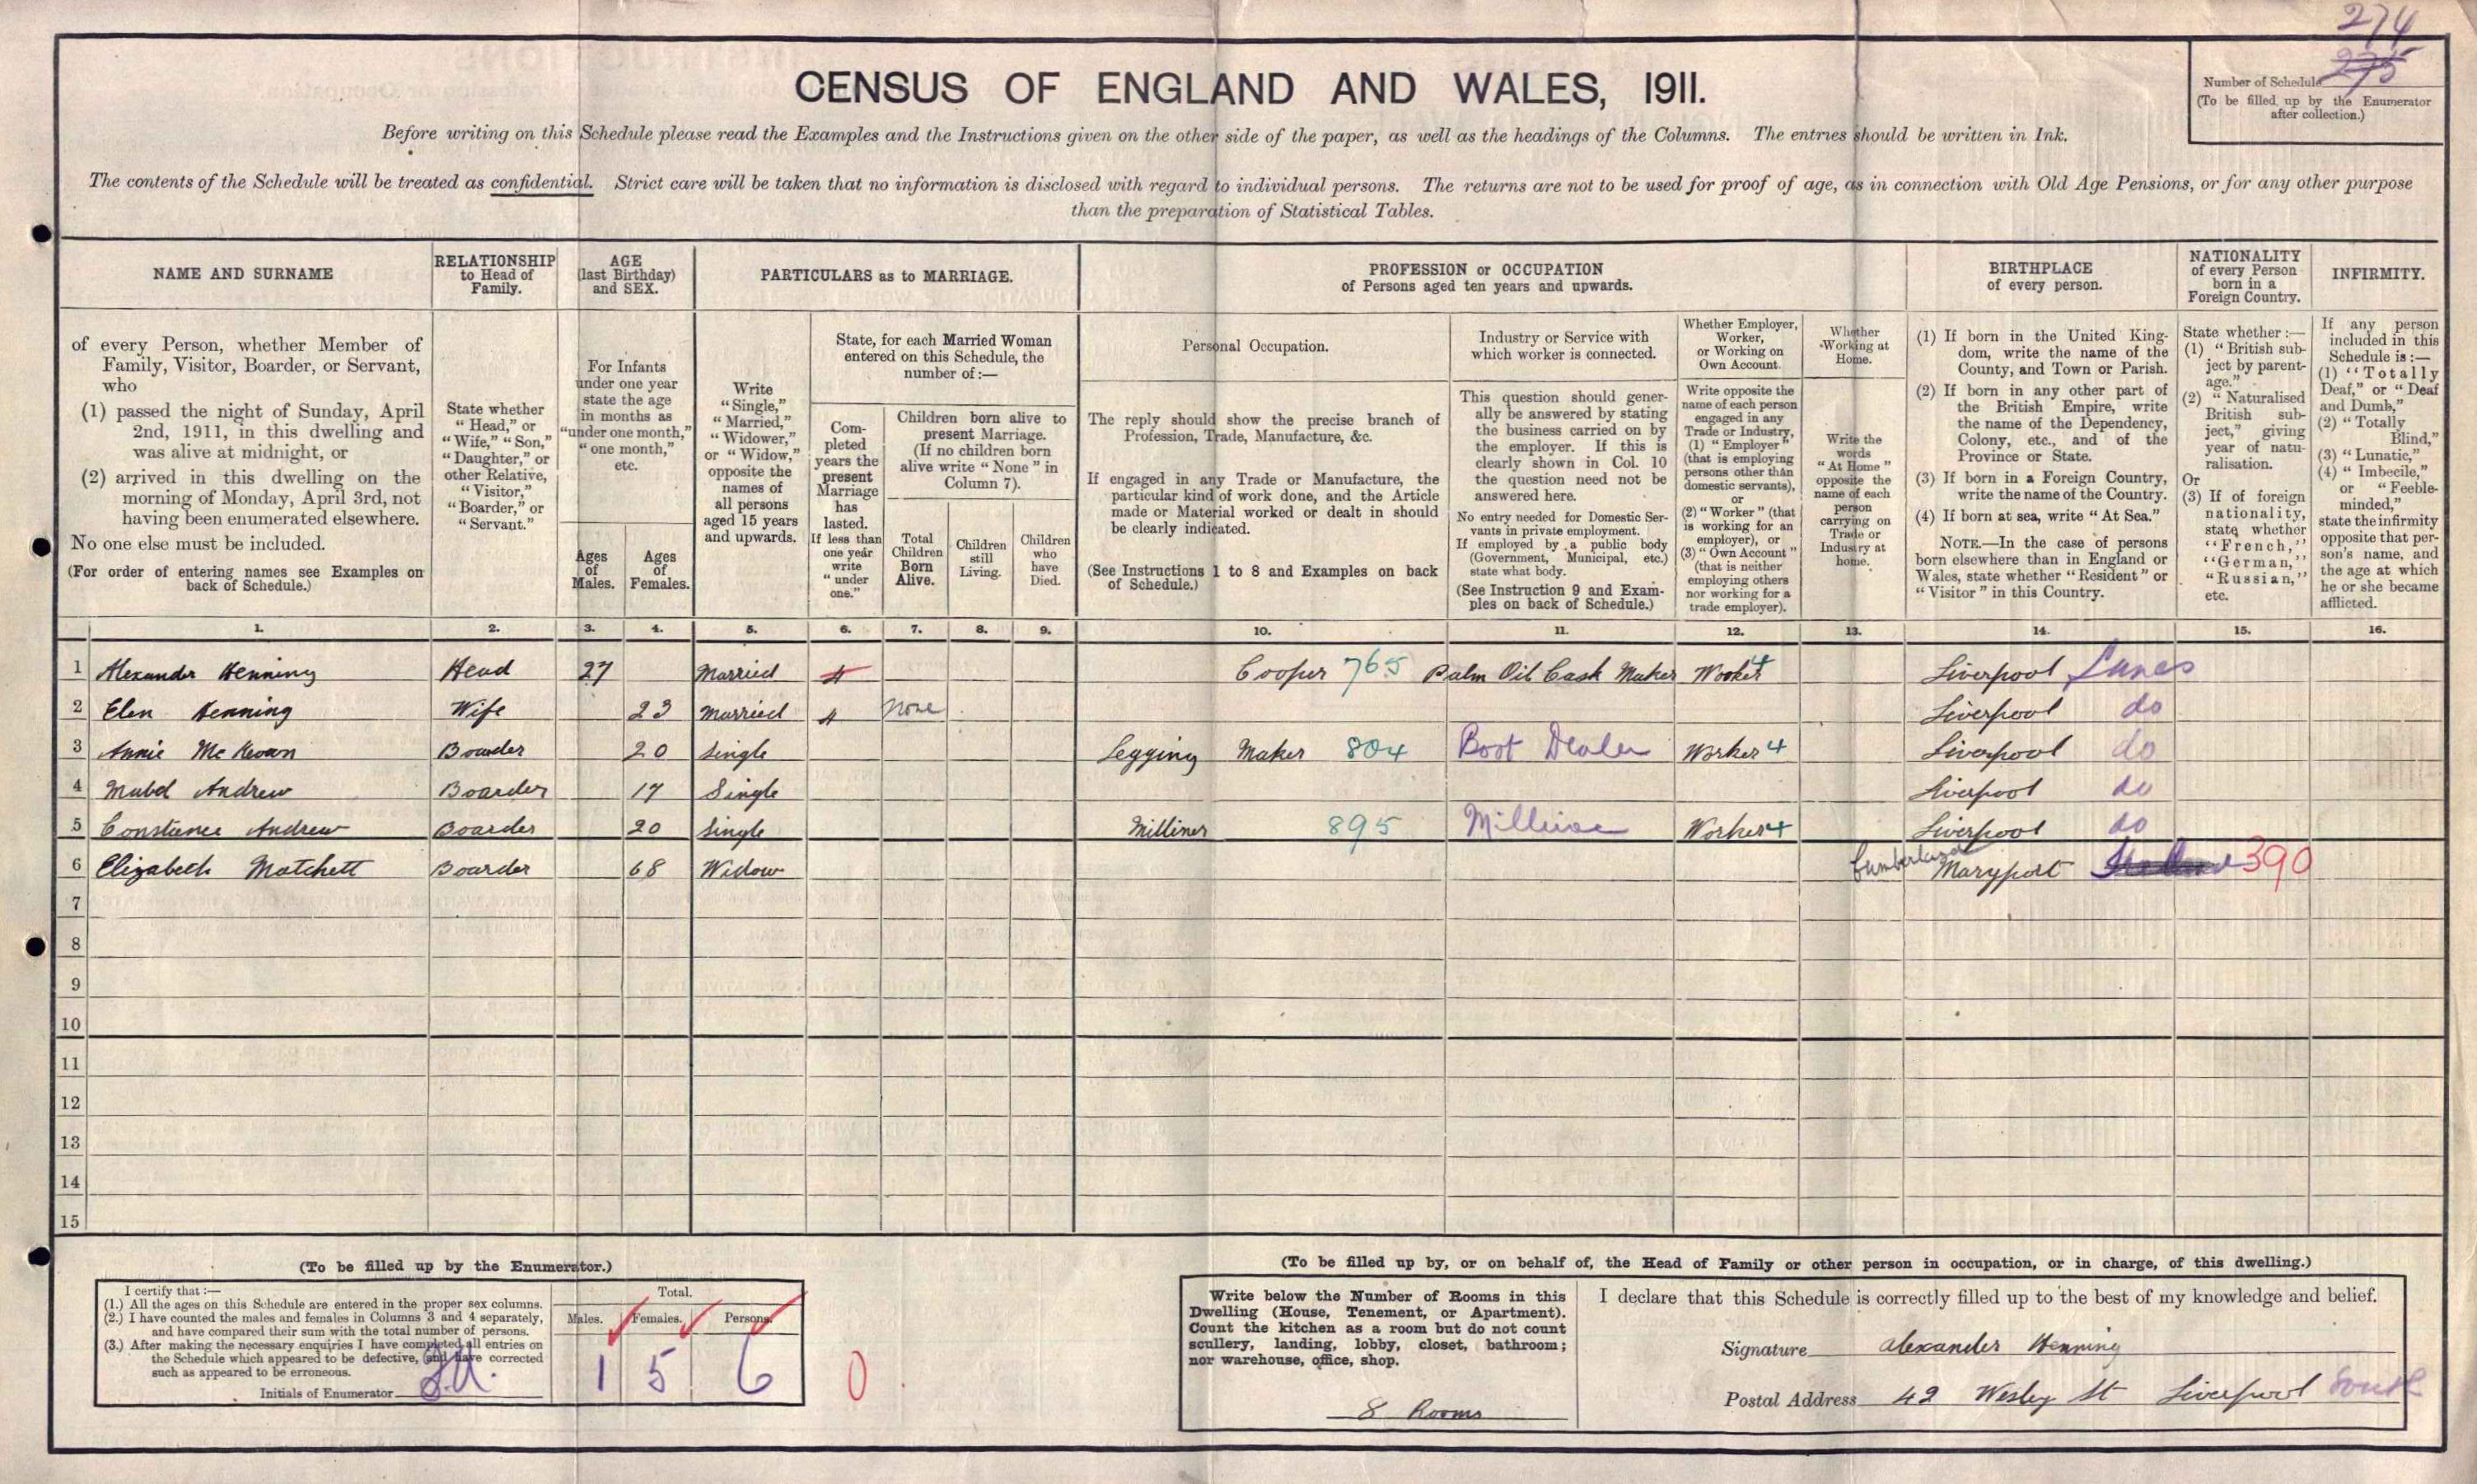 274
275
Number of Schedule
(To be filled up by the Enumerator
after collection.)
CENSUS OF ENGLAND AND WALES, 1911.
Before writing on this Schedule please read the Examples and the Instructions given on the other side of the paper, as well as the headings of the Columns. The entries should be written in Ink.
The contents of the Schedule will be treated as confidential. Strict care will be taken that no information is disclosed with regard to individual persons. The returns are not to be used for proof of age, as in connection with Old Age Pensions, or for any other purpose
than the preparation of Statistical Tables.
NAME AND SURNAME
of every Person, whether Member of
Family, Visitor, Boarder, or Servant,
who
(1) passed the night of Sunday, April
2nd, 1911, in this dwelling and
was alive at midnight, or
(2) arrived in this dwelling on the
morning of Monday, April 3rd, not
having been enumerated elsewhere.
No one else must be included.
(For order of entering names see Examples on
back of Schedule.)
RELATIONSHIP
to Head of
Family.
State whether
"Head," or
"Wife," "Son,"
"Daughter," or
other Relative,
"Visitor,"
"Boarder," or
"Servant."
AGE
(last Birthday)
and SEX.
For Infants
under one year
state the age
in months as
"under one month,"
"one month,"
etc.
Ages
of
Males.
Ages
of
Females.
PARTICULARS as to MARRIAGE.
Write
"Single,"
"Married,"
"Widower,"
or "Widow,"
opposite the
names of
all persons
aged 15 years
and upwards.
State, for each Married Woman
entered on this Schedule, the
number of:—
Com-
pleted
years the
present
Marriage
has
lasted.
If less than
one year
write
"under
one."
Children born alive to
present Marriage.
(If no children born
alive write "None" in
Column 7).
Total
Children
Born
Alive.
Children
still
Living.
Children
who
have
Died.
PROFESSION or OCCUPATION
of Persons aged ten years and upwards.
Personal Occupation.
The reply should show the precise branch of
Profession, Trade, Manufacture, &c.
If engaged in any Trade or Manufacture, the
particular kind of work done, and the Article
made or Material worked or dealt in should
be clearly indicated.
(See Instructions 1 to 8 and Examples on back
of Schedule.)
Industry or Service with
which worker is connected.
This question should gener-
ally be answered by stating
the business carried on by
the employer. If this is
clearly shown in Col. 10
the question need not be
answered here.
No entry needed for Domestic Ser-
vants in private employment.
If employed by a public body
(Government, Municipal, etc.)
state what body.
(See Instruction 9 and Exam-
ples on back of Schedule.)
Whether Employer,
Worker,
or Working on
Own Account.
Write opposite the
name of each person
engaged in any
Trade or Industry,
(1) "Employer"
(that is employing
persons other than
domestic servants),
or
(2) "Worker" (that
is working for an
employer), or
(3) "Own Account"
(that is neither
employing others
nor working for a
trade employer).
Whether
Working at
Home.
Write the
words
"At Home"
opposite the
name of each
person
carrying on
Trade or
Industry at
home.
BIRTHPLACE
of every person.
(1) If born in the United King-
dom, write the name of the
County, and Town or Parish.
(2) If born in any other part of
the British Empire, write
the name of the Dependency,
Colony, etc., and of the
Province or State.
(3) If born in a Foreign Country,
write the name of the Country.
(4) If born at sea, write "At Sea."
NOTE.—In the case of persons
born elsewhere than in England or
Wales, state whether "Resident" or
"Visitor" in this Country.
NATIONALITY
of every Person
born in a
Foreign Country.
State whether:—
(1) "British sub-
ject by parent-
age."
(2) "Naturalised
British sub-
ject," giving
year of natu-
ralisation.
Or
(3) If of foreign
nationality,
state whether
"French,"
"German,"
"Russian,"
etc.
INFIRMITY.
If any person
included in this
Schedule is:—
(1) "Totally
Deaf," or "Deaf
and Dumb,"
(2) "Totally
Blind,"
(3) "Lunatic,"
(4) "Imbecile,"
or "Feeble-
minded,"
state the infirmity
opposite that per-
son's name, and
the age at which
he or she became
afflicted.
1. 2. 3. 4. 5. 6. 7. 8. 9. 10. 11. 12. 13. 14. 15. 16.
1 Alexander Henning Head 27 Married 4 Cooper 765 Palm Oil Cask Maker Worker 4 Liverpool Lancs
2 Elen Henning Wife 23 Married 4 None Liverpool do
3 Annie McKeown Boarder 20 Single Legging Maker 804 Boot Dealer Worker 4 Liverpool do
4 Mabel Andrew Boarder 17 Single Liverpool do
5 Constance Andrew Boarder 20 Single Milliner 895 Worker 4 Liverpool do
6 Elizabeth Matchett Boarder 68 Widow Cumberland Maryport 390
7
8
9
10
11
12
13
14
15
(To be filled up by the Enumerator.)
I certify that:—
(1.) All the ages on this Schedule are entered in the proper sex columns.
(2.) I have counted the males and females in Columns 3 and 4 separately,
and have compared their sum with the total number of persons.
(3.) After making the necessary enquiries I have completed all entries on
the Schedule which appeared to be defective, and have corrected
such as appeared to be erroneous.
Initials of Enumerator
Total.
Males. Females. Persons.
1 5 6
0
(To be filled up by, or on behalf of, the Head of Family or other person in occupation, or in charge, of this dwelling.)
Write below the Number of Rooms in this
Dwelling (House, Tenement, or Apartment).
Count the kitchen as a room but do not count
scullery, landing, lobby, closet, bathroom;
nor warehouse, office, shop.
8 Rooms
I declare that this Schedule is correctly filled up to the best of my knowledge and belief.
Signature Alexander Henning
Postal Address 42 Wesley St Liverpool South